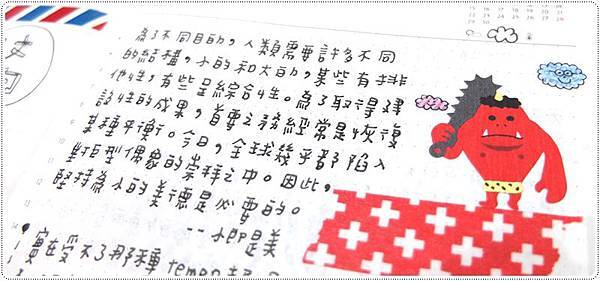 為了不同目的，人類需要許多不同
的結構，小的和大的，某些有排
他性，有些呈綜合性。為了取得建
設性的成果，首要之務經常是恢復
某種平衡。今日，全球幾乎都陷入
對巨型偶象的崇拜之中。因此，
堅持為小的美德是必要的。
--小即是美
實在受不了那種 tempo